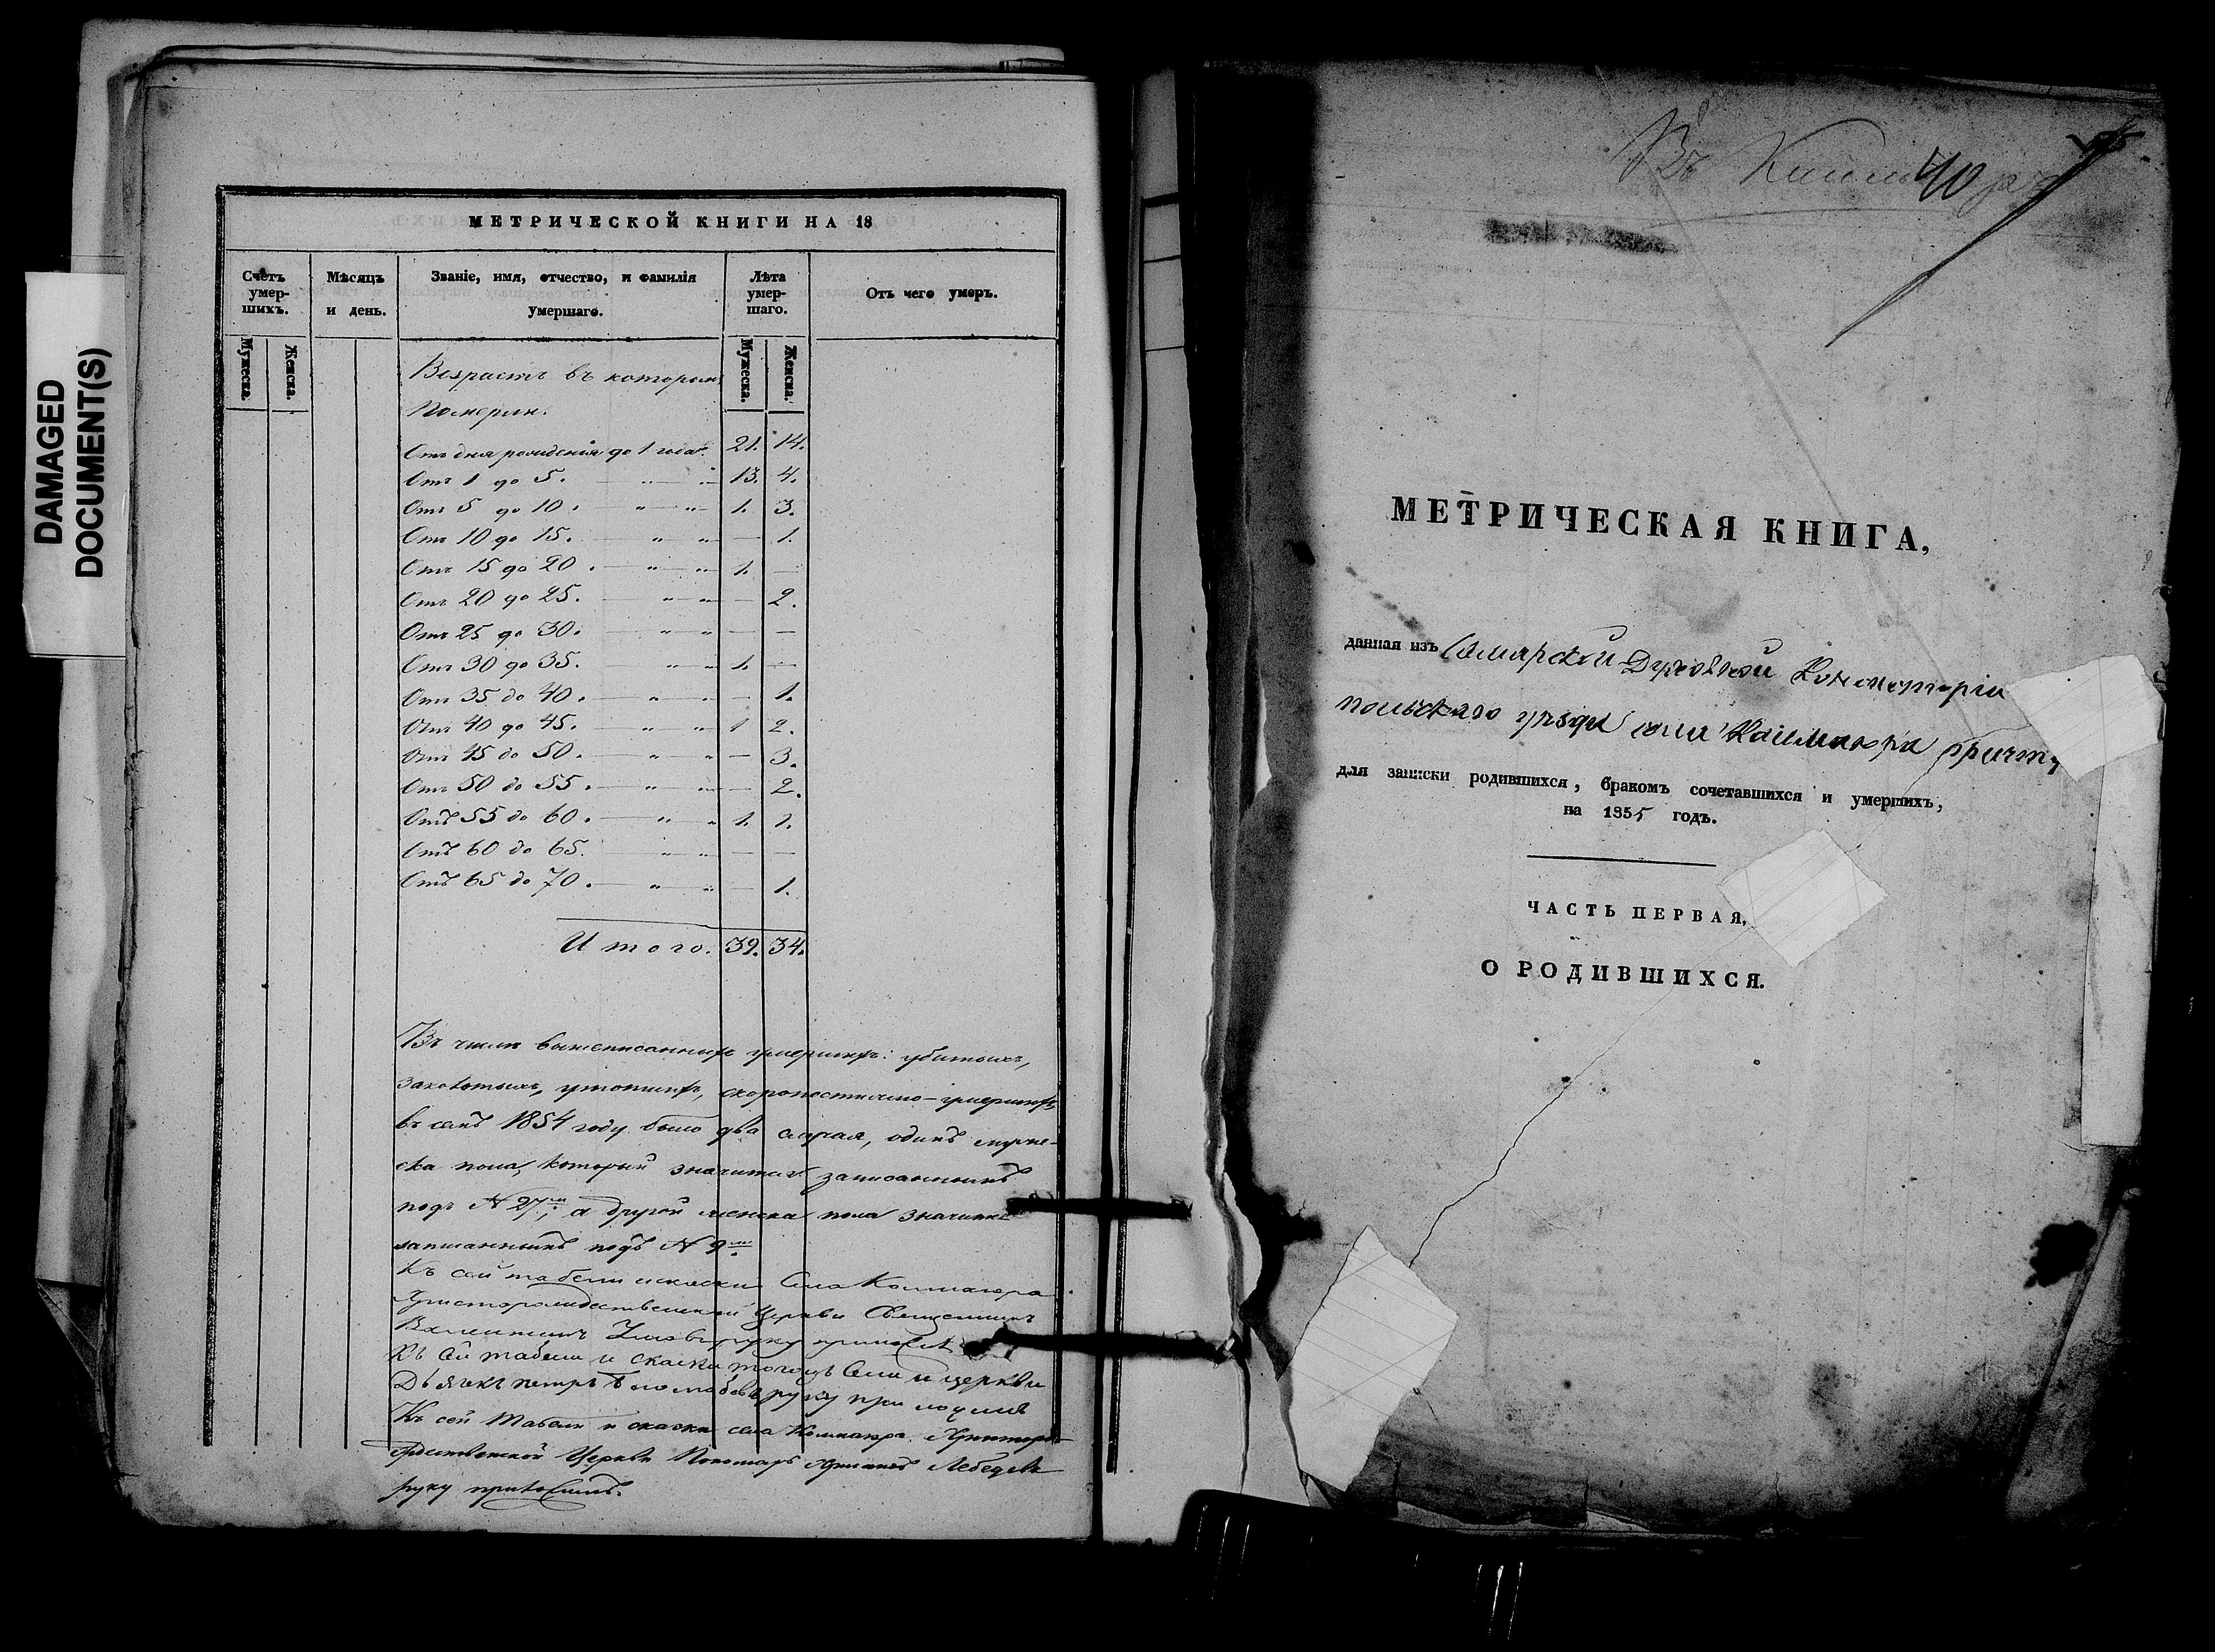 DAMAGED
DOCUMENT(S)
МЕТРИЧЕСКОЙ КНИГИ НА 18
Счетъ умер-шихъ.
Мѣсяцъ и день.
Званіе, имя, отчество, и фамилія умершаго.
Лѣта умер-шаго.
Отъ чего умеръ.
Мужеска.
Женска.
Мужеска.
Женска.
Возрастъ въ которомъ
померли.
Отъ дня рожденія до 1 года. 21. 14.
Отъ 1 до 5. — „ — „ — 13. 4.
Отъ 5 до 10. — „ — „ — 1. 3.
Отъ 10 до 15. — „ — „ — 1.
Отъ 15 до 20. — „ — „ 1. —
Отъ 20 до 25. — „ — „ — 2.
Отъ 25 до 30. — „ — „ — —
Отъ 30 до 35. — „ — „ 1. —
Отъ 35 до 40. — „ — „ — 1.
Отъ 40 до 45. — „ — „ 1 2.
Отъ 45 до 50. — „ — „ — 3.
Отъ 50 до 55. — „ — „ — 2.
Отъ 55 до 60. — „ — „ 1. 1.
Отъ 60 до 65. — „ — „ — —
Отъ 65 до 70. — „ — „ — 1.
Итого. 39. 34.
Въ числѣ вышеписанныхъ умершихъ: убитыхъ,
утопшихъ, скоропостижно-умершихъ
въ семъ 1854 году было два случая, одинъ муже-
ска пола, который значится записаннымъ
подъ N 27м, а другой женска пола значится
записаннымъ подъ N 9м
Къ сей табели и сказки Села Колмаюра
Христорождественской Церкви Священникъ
руку приложилъ
Къ сей табели и скаски тогожъ Села и церкви
Дьячекъ Петръ руку приложилъ
Къ сей табели и сказки села Колмаюра Христоро-
ждественской Церкви Пономарь Лебедевъ
руку приложилъ.
40
МЕТРИЧЕСКАЯ КНИГА,
данная изъ Самарской Духовной Консисторіи
уѣзда села Колмаюра причту
для записки родившихся, бракомъ сочетавшихся и умершихъ,
на 1855 годъ.
ЧАСТЬ ПЕРВАЯ,
О РОДИВШИХСЯ.